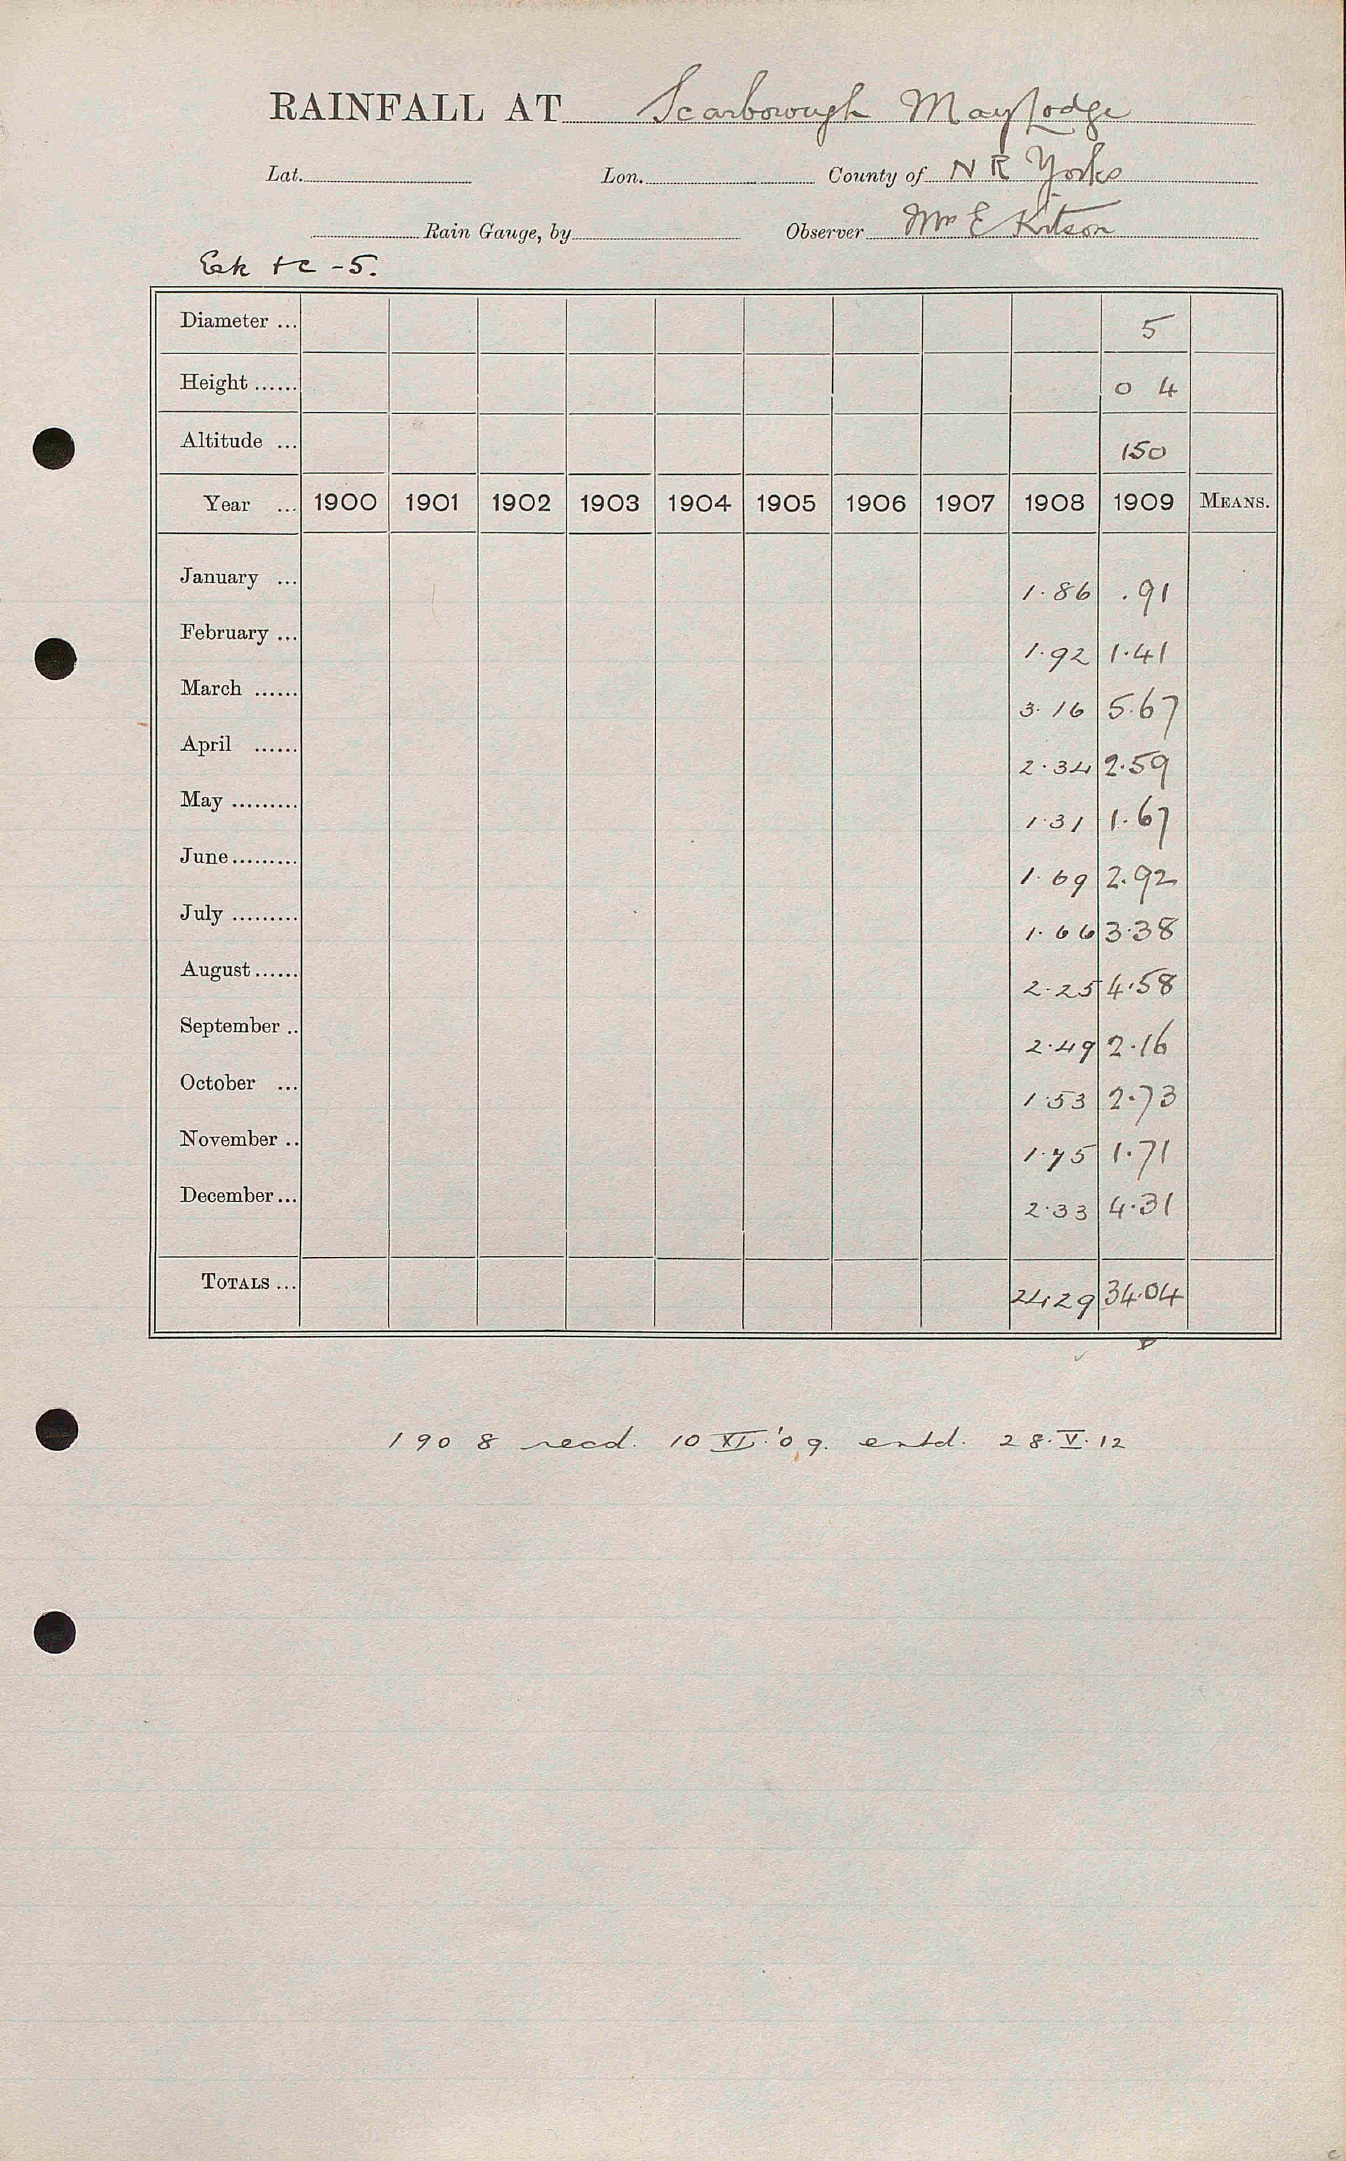 RAINFALL AT Scarborough May Lodge
Lat. Lon. County of N R Yorks
Rain Gauge, by Observer Mr E Kitson
Esk &c -5.
Diameter ... 5
Height ...... 0 4
Altitude ... 150
Year ... 1900 1901 1902 1903 1904 1905 1906 1907 1908 1909 MEANS.
January ... 1.86 .91
February ... 1.92 1.41
March ...... 3.16 5.67
April ...... 2.34 2.59
May ......... 1.31 1.67
June ......... 1.69 2.92
July ......... 1.66 3.38
August ...... 2.25 4.58
September .. 2.49 2.16
October ... 1.53 2.73
November .. 1.75 1.71
December ... 2.33 4.31
TOTALS ... 24.29 34.04
1908 recd. 10 XI '09. entd. 28.V.12